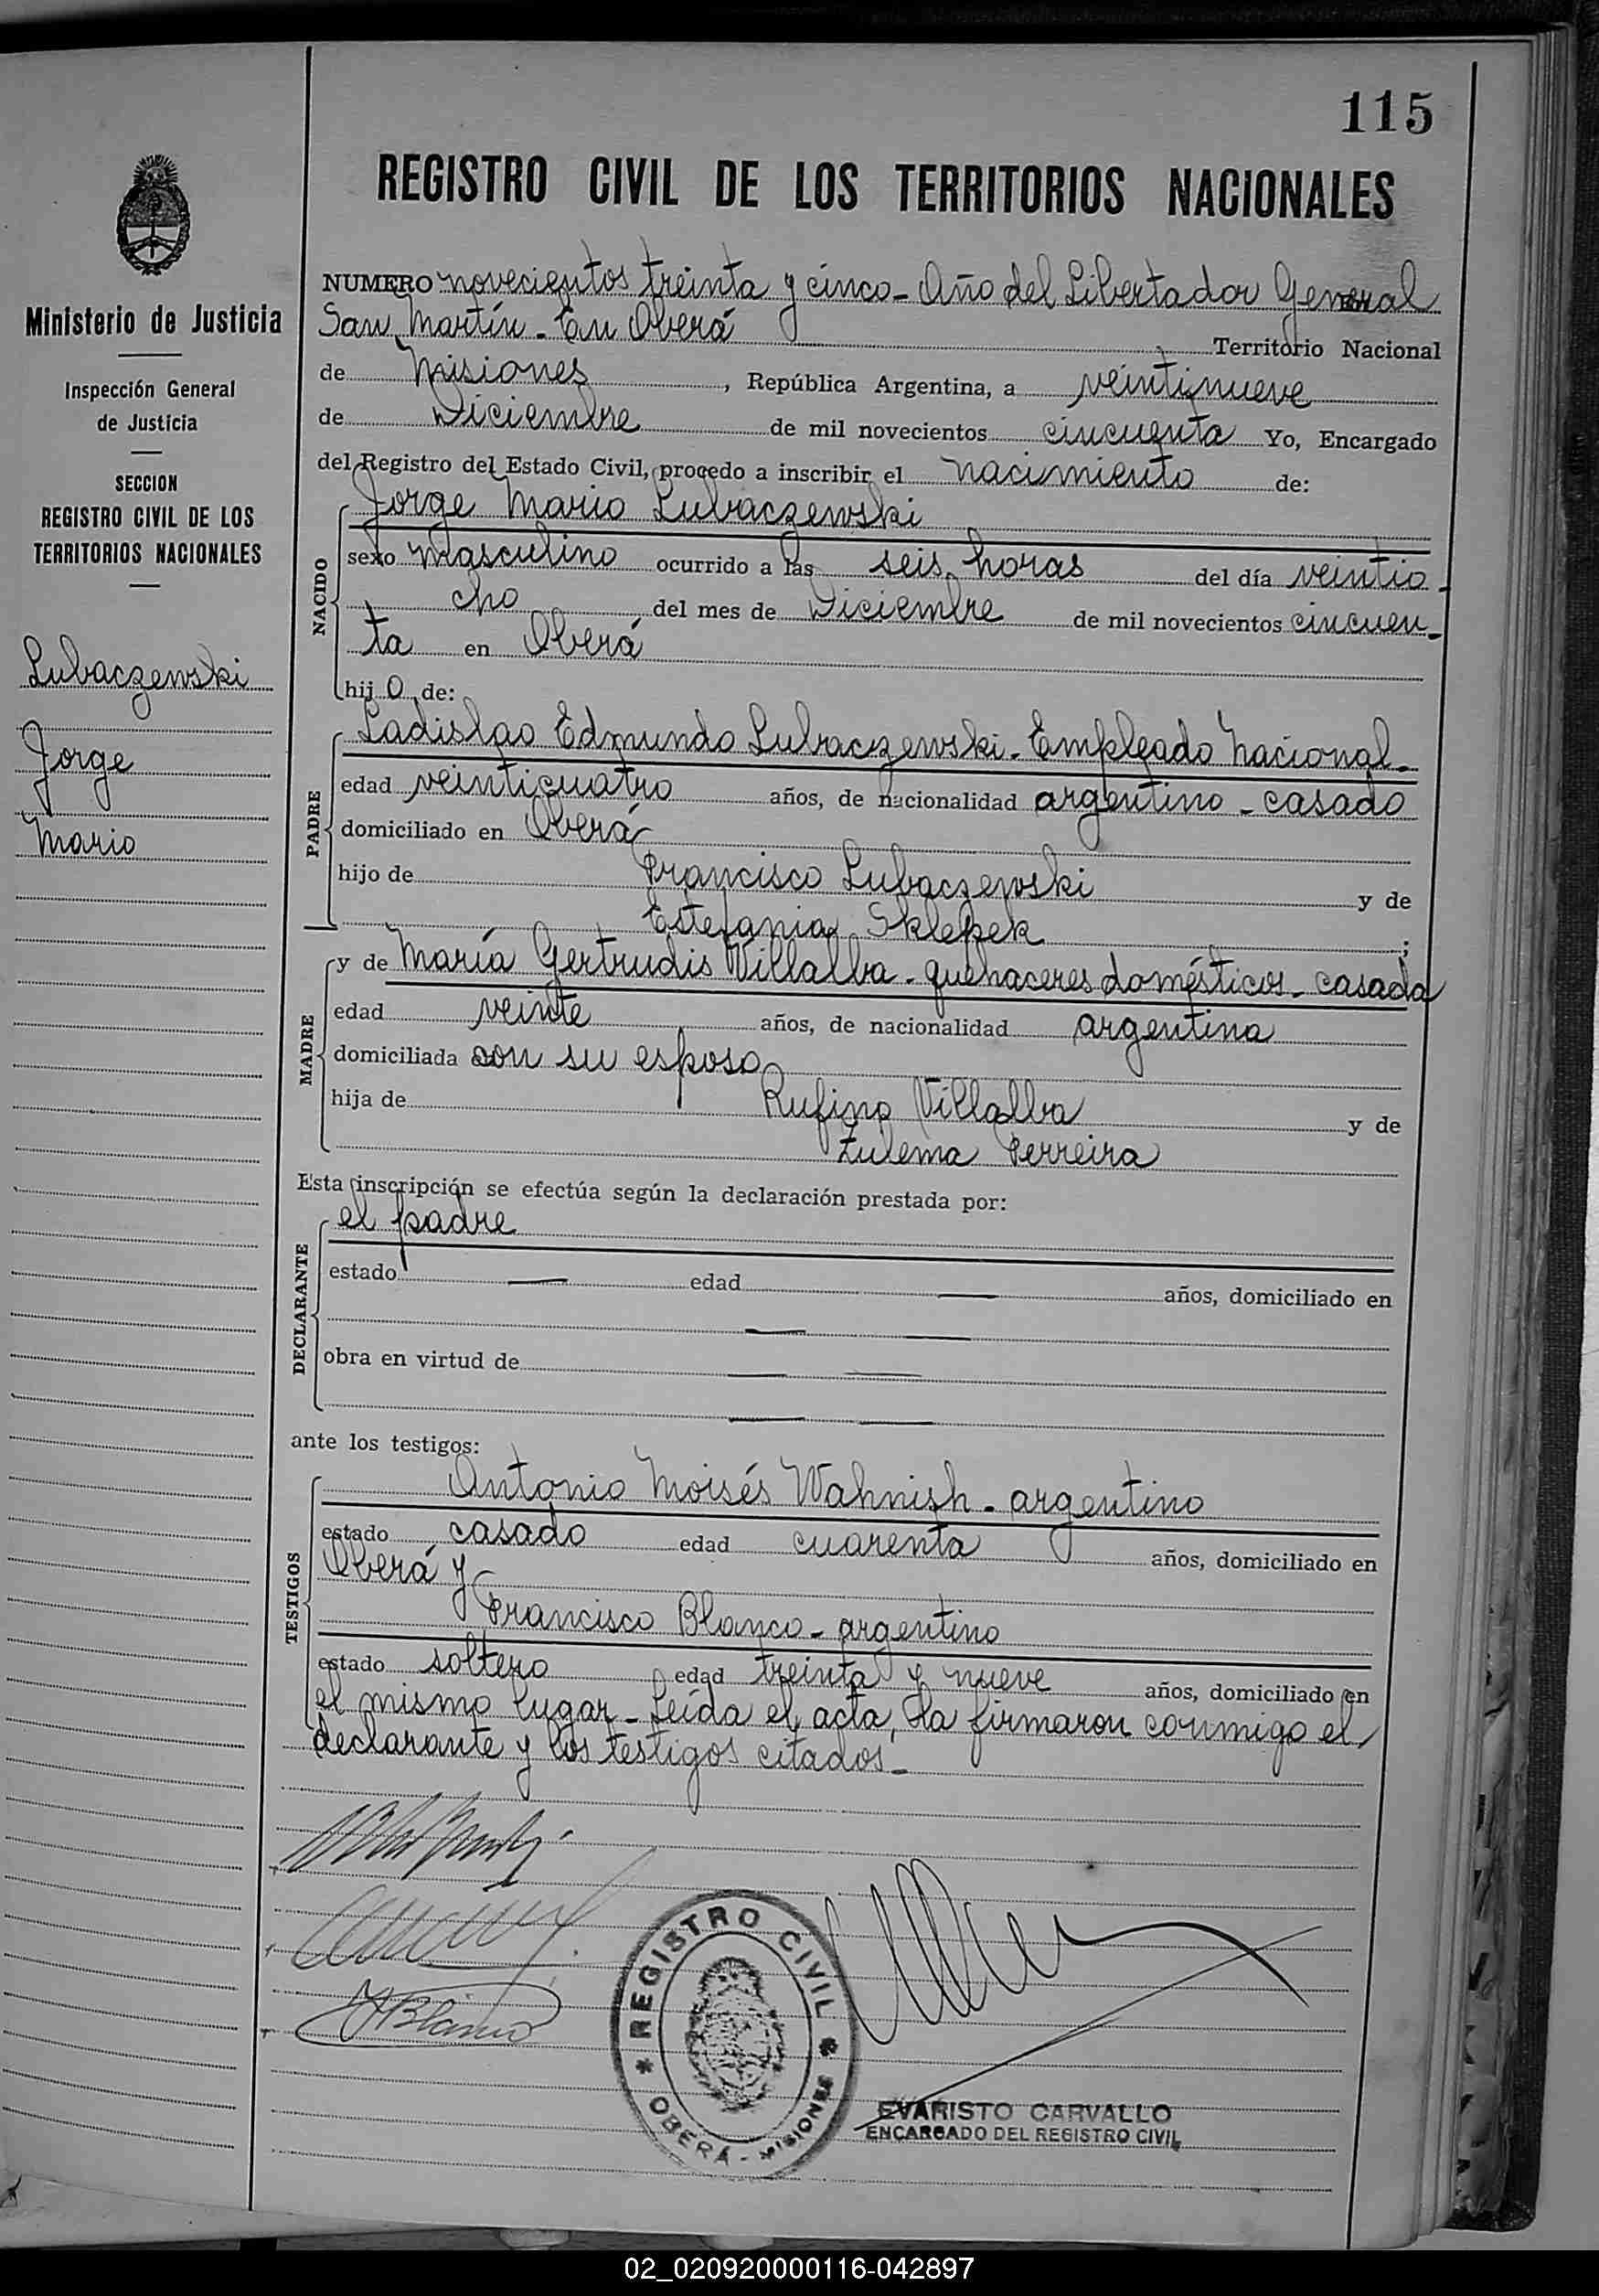 115
REGISTRO CIVIL DE LOS TERRITORIOS NACIONALES
Ministerio de Justicia
Inspección General
de Justicia
SECCION
REGISTRO CIVIL DE LOS
TERRITORIOS NACIONALES
Lubaczewski
Jorge
Mario
NUMERO novecientos treinta y cinco - Año del Libertador General
San Martín - En Oberá Territorio Nacional
de Misiones, República Argentina, a veintinueve
de Diciembre de mil novecientos cincuenta Yo, Encargado
del Registro del Estado Civil, procedo a inscribir el nacimiento de:
Jorge Mario Lubaczewski
NACIDO
sexo masculino ocurrido a las seis horas del día veintio-
cho del mes de Diciembre de mil novecientos cincuen-
ta en Oberá
hijo de:
PADRE
Ladislao Edmundo Lubaczewski - Empleado Nacional -
edad veinticuatro años, de nacionalidad argentino - casado
domiciliado en Oberá
hijo de Francisco Lubaczewski y de
Estefania Sklepek ;
MADRE
y de María Gertrudis Villalba - quehaceres domésticos - casada
edad veinte años, de nacionalidad argentina
domiciliada con su esposo
hija de Rufino Villalba y de
Zulema Ferreira
Esta inscripción se efectúa según la declaración prestada por:
DECLARANTE
el padre
estado — edad — años, domiciliado en
— —
obra en virtud de — —
— —
ante los testigos:
TESTIGOS
Antonio Moisés Wahnish - argentino
estado casado edad cuarenta años, domiciliado en
Oberá y
Francisco Blanco - argentino
estado soltero edad treinta y nueve años, domiciliado en
el mismo lugar - Leída el acta, la firmaron conmigo el
declarante y los testigos citados -
FBlanco
REGISTRO CIVIL
* OBERA - MISIONES *
EVARISTO CARVALLO
ENCARGADO DEL REGISTRO CIVIL
02_020920000116-042897